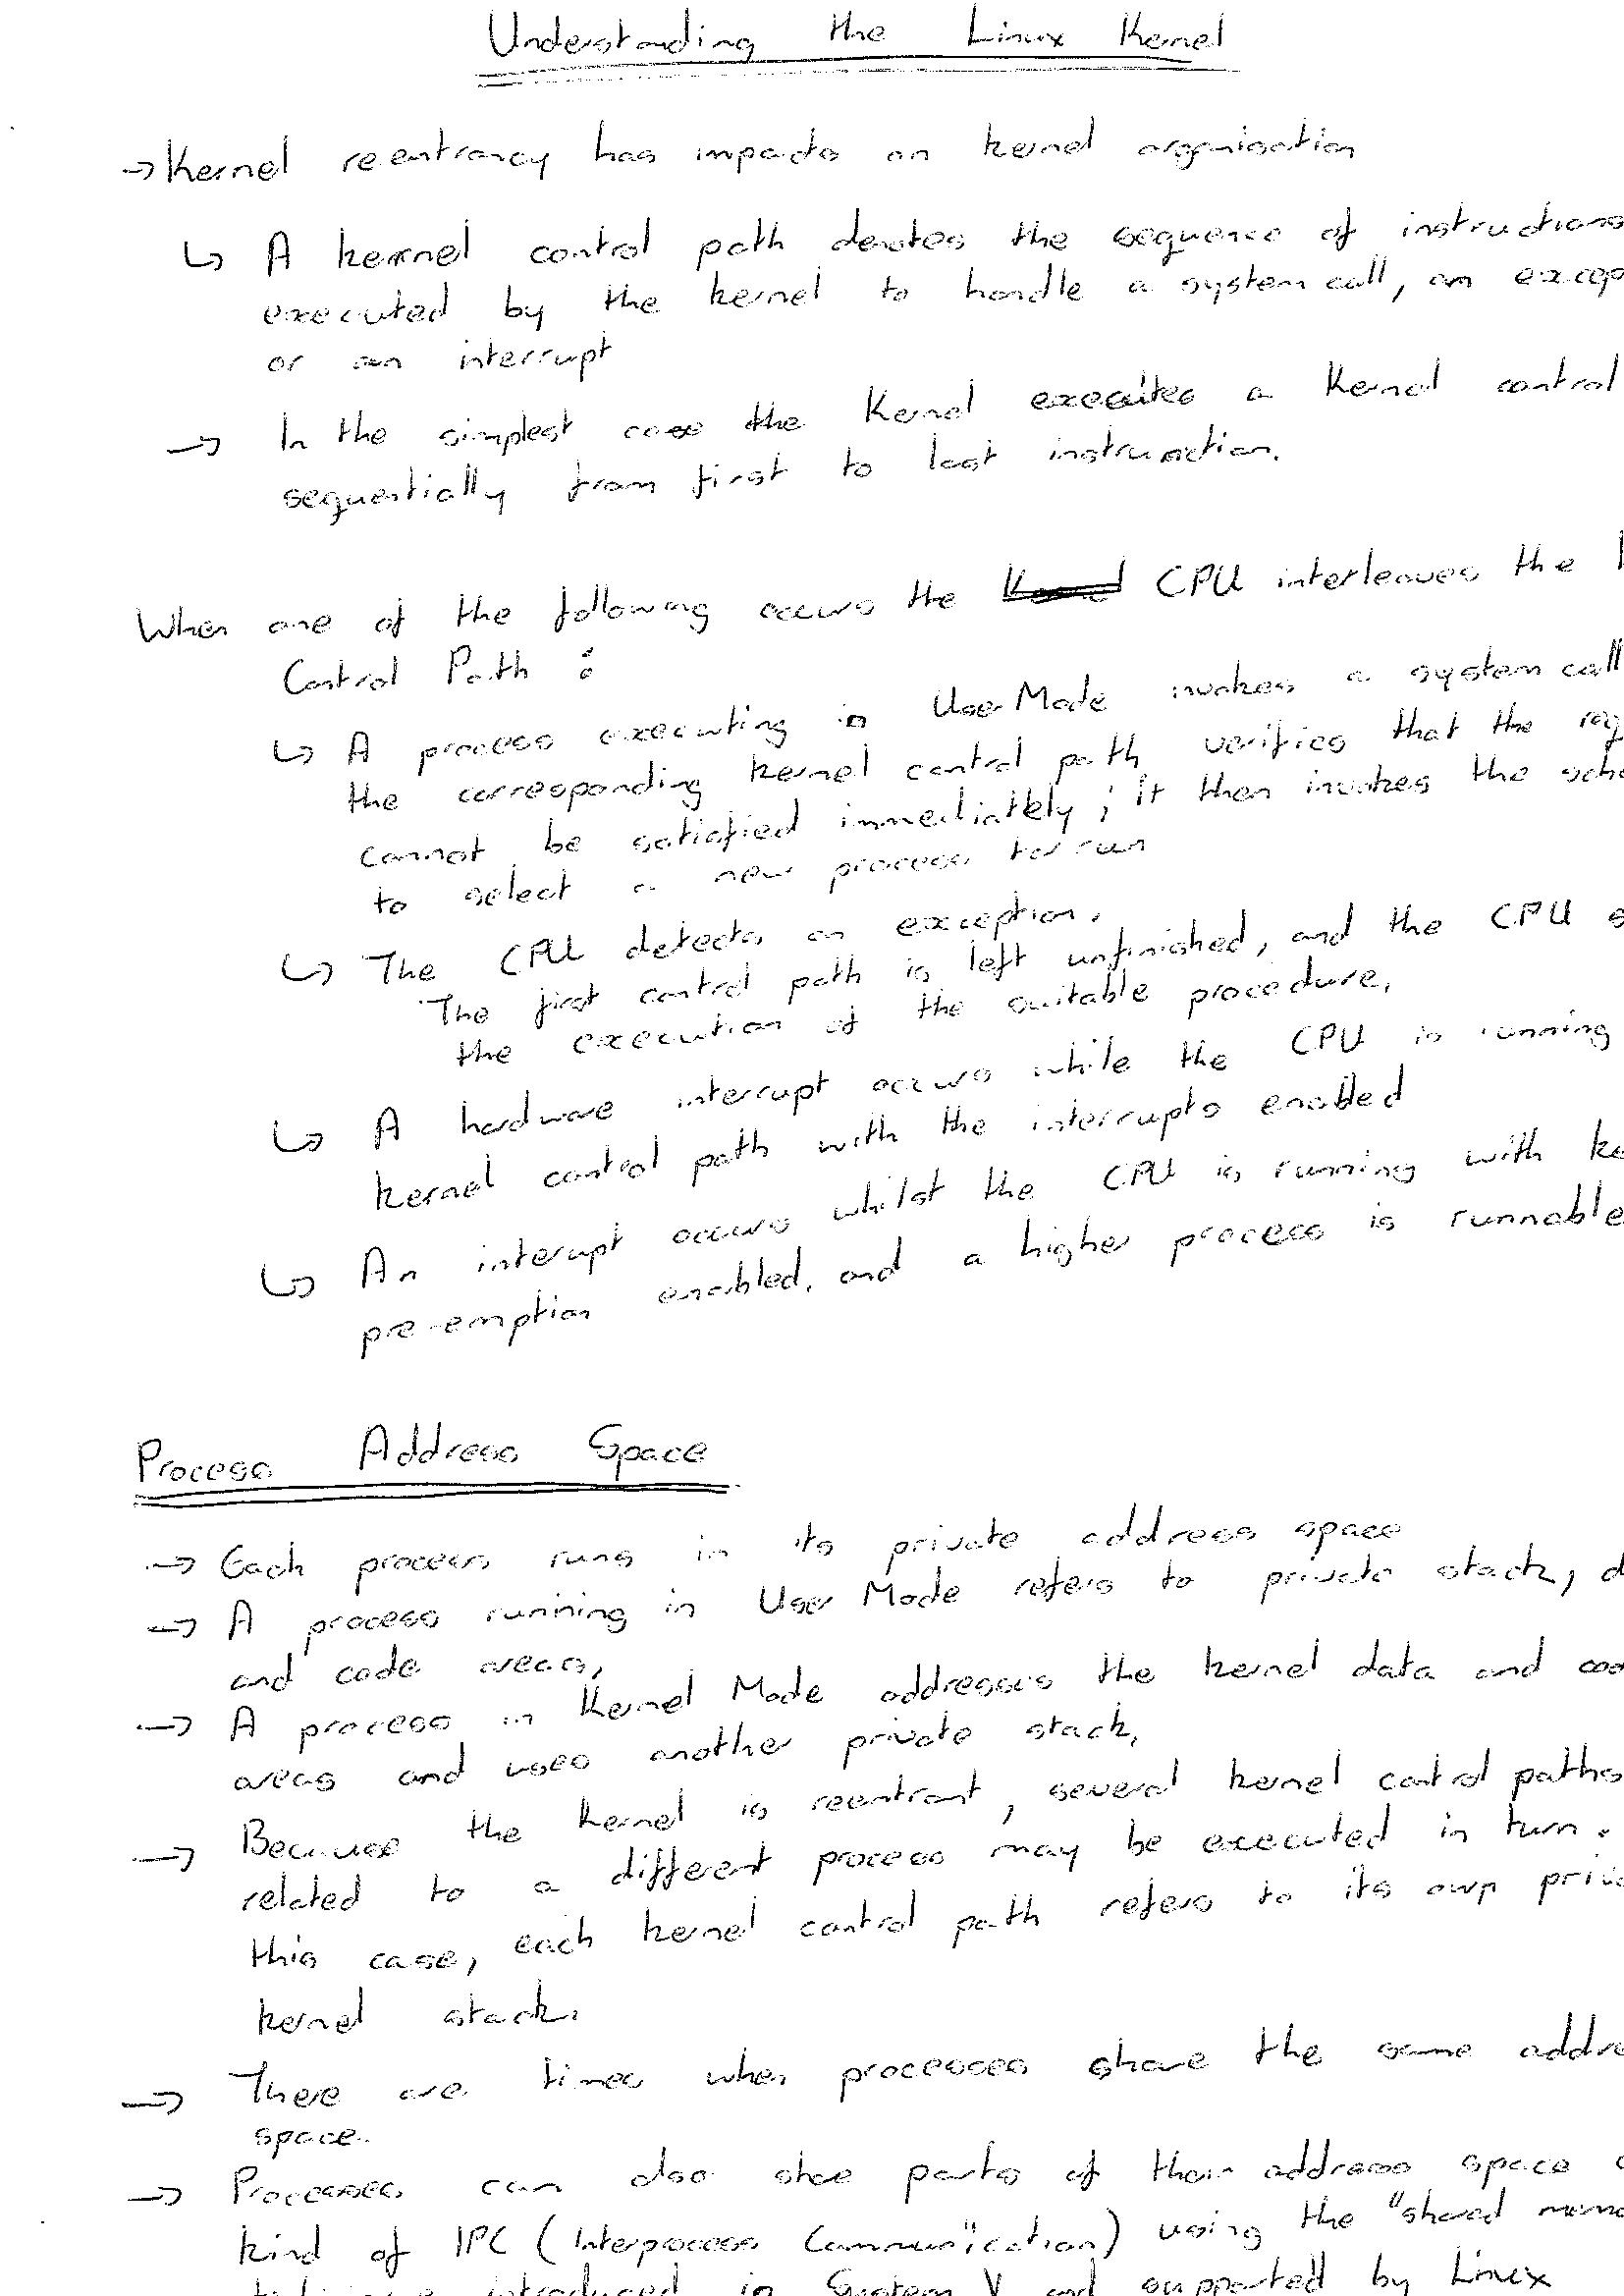 Understanding the Linux Kernel
→ Kernel reentrancy has impacts on kernel organisation
↳ A kernel control path denotes the sequence of instructions
executed by the kernel to handle a system call, an excep
or an interrupt
→ In the simplest case the Kernel executes a Kernel control
sequentially from first to last instruction.
When one of the following occurs the CPU interleaves the
Control Path :
↳ A process executing in User Mode invokes a system call
the corresponding kernel control path verifies that the req
cannot be satisfied immediatley ; it then invokes the sche
to select a new process to run
↳ The CPU detects an exception.
The first control path is left unfinished, and the CPU s
the execution of the suitable procedure.
↳ A hardware interrupt occurs while the CPU is running
kernel control path with the interrupts enabled
↳ An interupt occurs whilst the CPU is running with ke
pre-emption enabled, and a higher process is runnable
Process Address Space
→ Each process runs in its private address space
→ A process running in User Mode refers to private stack, d
and code areas,
→ A process in Kernel Mode addresses the kernel data and cod
areas and uses another private stack,
→ Because the kernel is reentrant, several kernel control paths
related to a different process may be executed in turn.
this case, each kernel control path refers to its own priva
kernel stack.
→ There are times when processes share the same addre
space.
→ Processes can also share parts of their address space a
kind of IPC (Interprocess Communication) using the "shared memo
introduced in System V and supported by Linux